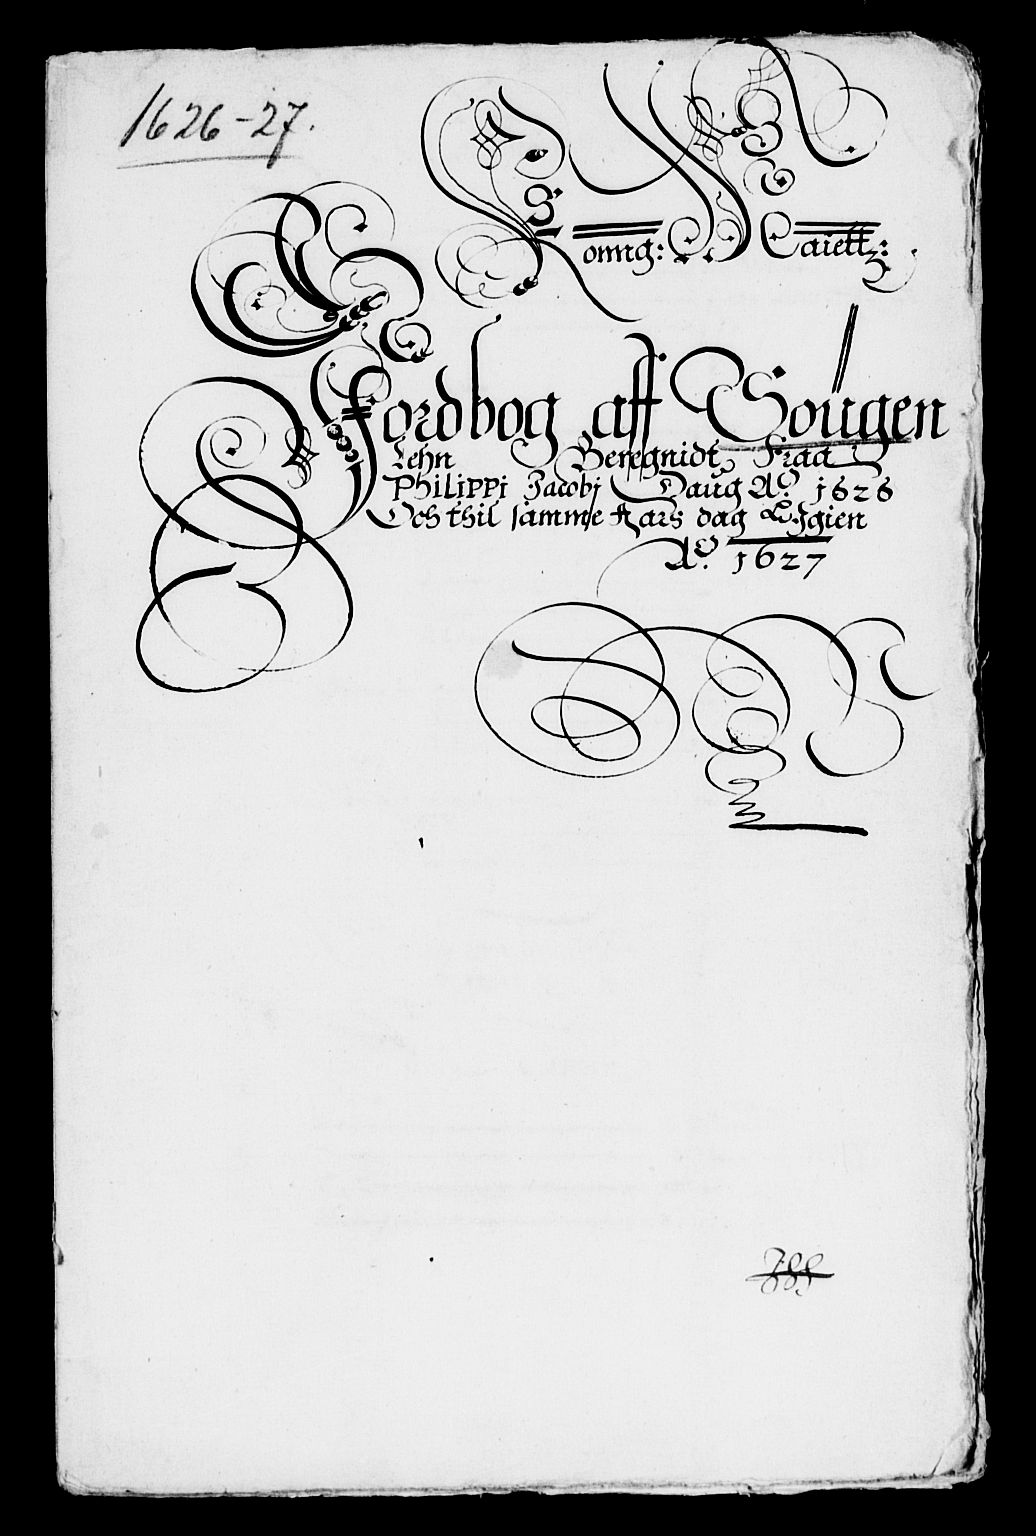 1626-27.
Konng: Maiettz:
Jordbog aff Sougen
Lehn Beregnidt Fraa
Philippi Jacobj Daug Ao. 1626
Och thil samme Aars dag Igien
Ao. 1627